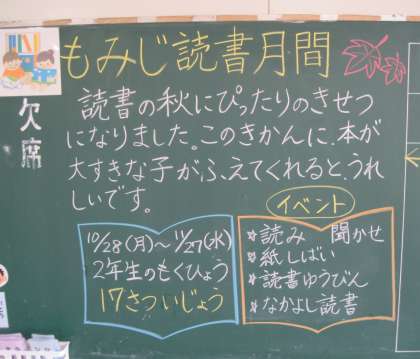 もみじ読書月間
欠席
読書の秋にぴったりのきせつ
になりました。このきかんに、本が
大すきな子が、ふえてくれると、うれ
しいです。
イベント
10/28(月)〜11/27(水)
2年生のもくひょう
17さついじょう
☆読み 聞かせ
☆紙しばい
☆読書ゆうびん
☆なかよし読書